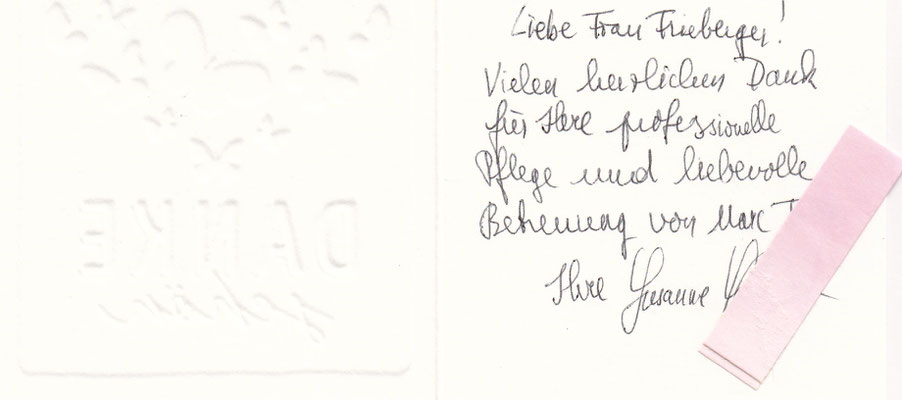 DANKE
Liebe Frau Frieberger!
Vielen herzlichen Dank
für Ihre professionelle
Pflege und liebevolle
Betreuung von Marc
Ihre Susanne